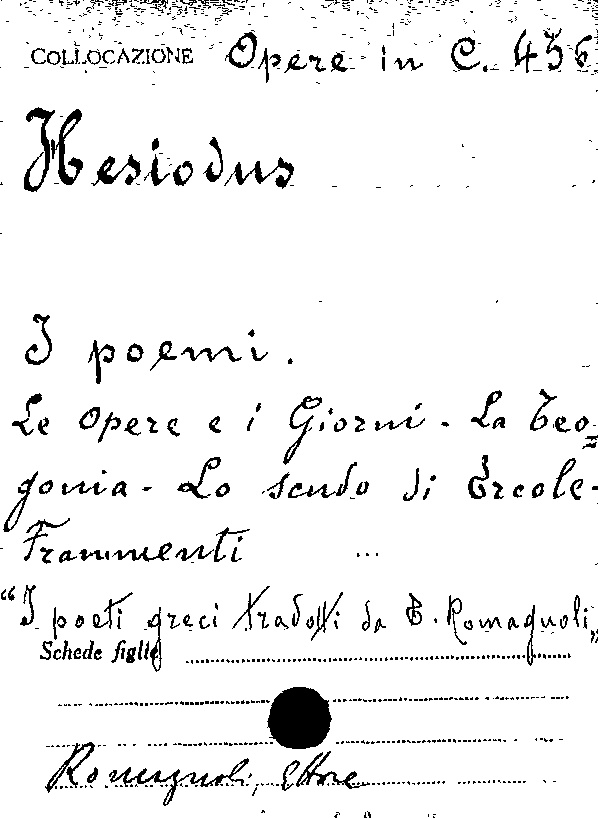 COLLOCAZIONE Opere in C. 456
Hesiodus
I poemi.
Le opere e i Giorni - La Teo=
gonia - Lo scudo di Ercole -
Frammenti ...
“I poeti greci tradotti da E. Romagnoli„
Schede figlie
Romagnoli, Ettore